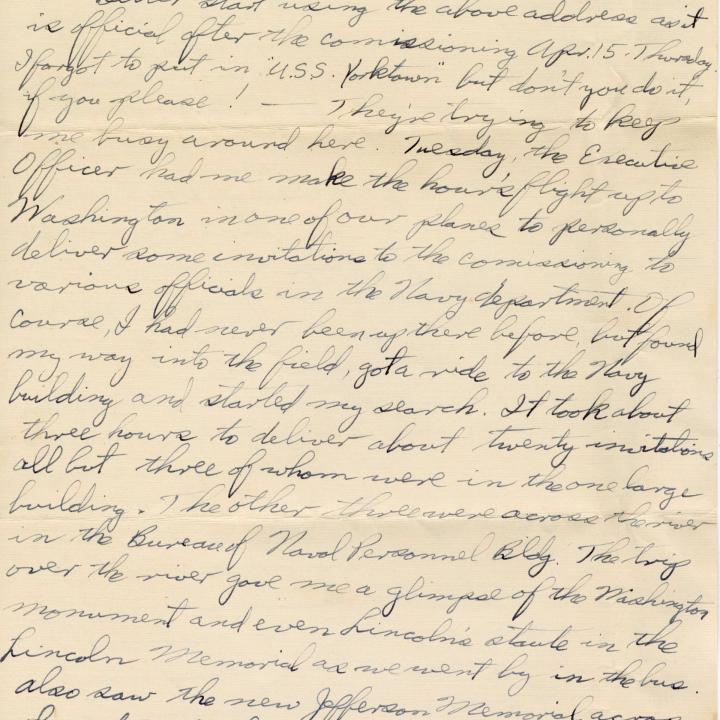 Better start using the above address as it
is official after the comissioning Apr. 15. Thursday.
I forgot to put in "U.S.S. Yorktown" but don't you do it,
if you please! — They're trying to keep
me busy around here. Tuesday, the Executive
Officer had me make the hour's flight up to
Washington in one of our planes to personally
deliver some invitations to the comissioning to
various officials in the Navy department. Of
course, I had never been up there before, but found
my way into the field, got a ride to the Navy
building and started my search. It took about
three hours to deliver about twenty invitations
all but three of whom were in the one large
building. The other three were across the river
in the Bureau of Naval Personnel Bldg. The trip
over the river gave me a glimpse of the Washington
monument and even Lincoln's staute in the
Lincoln Memorial as we went by in the bus.
also saw the new Jefferson Memorial, across